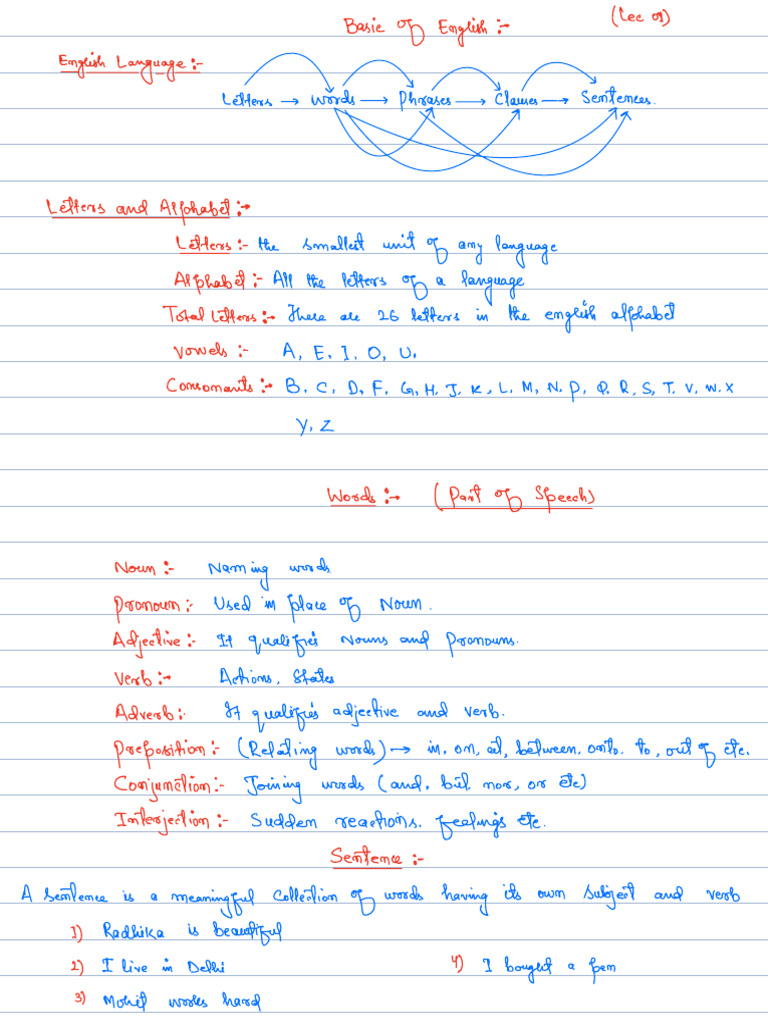 (Lec 01)
Basic of English :-
English Language :-
Letters → words → Phrases → Clauses → Sentences.
Letters and Alphabet :-
Letters :- the smallest unit of any language
Alphabet :- All the letters of a language
Total Letters :- There are 26 letters in the english alphabet
Vowels :- A, E, I, O, U,
Consonants :- B, C, D, F, G, H, J, K, L, M, N, P, Q, R, S, T, V, W, X
Y, Z
Words :- (Part of Speech)
Noun :- Naming words
Pronoun :- Used in place of Noun.
Adjective :- It qualifies Nouns and Pronouns.
Verb :- Actions, States
Adverb :- It qualifies adjective and verb.
Preposition :- (Relating words) → in, on, at, between, onto, to, out of etc.
Conjunction :- Joining words (and, but, nor, or etc)
Interjection :- Sudden reactions, feelings etc.
Sentence :-
A sentence is a meaningful collection of words having its own subject and verb
1) Radhika is beautiful
2) I live in Delhi 4) I bought a pen
3) Mohit works hard